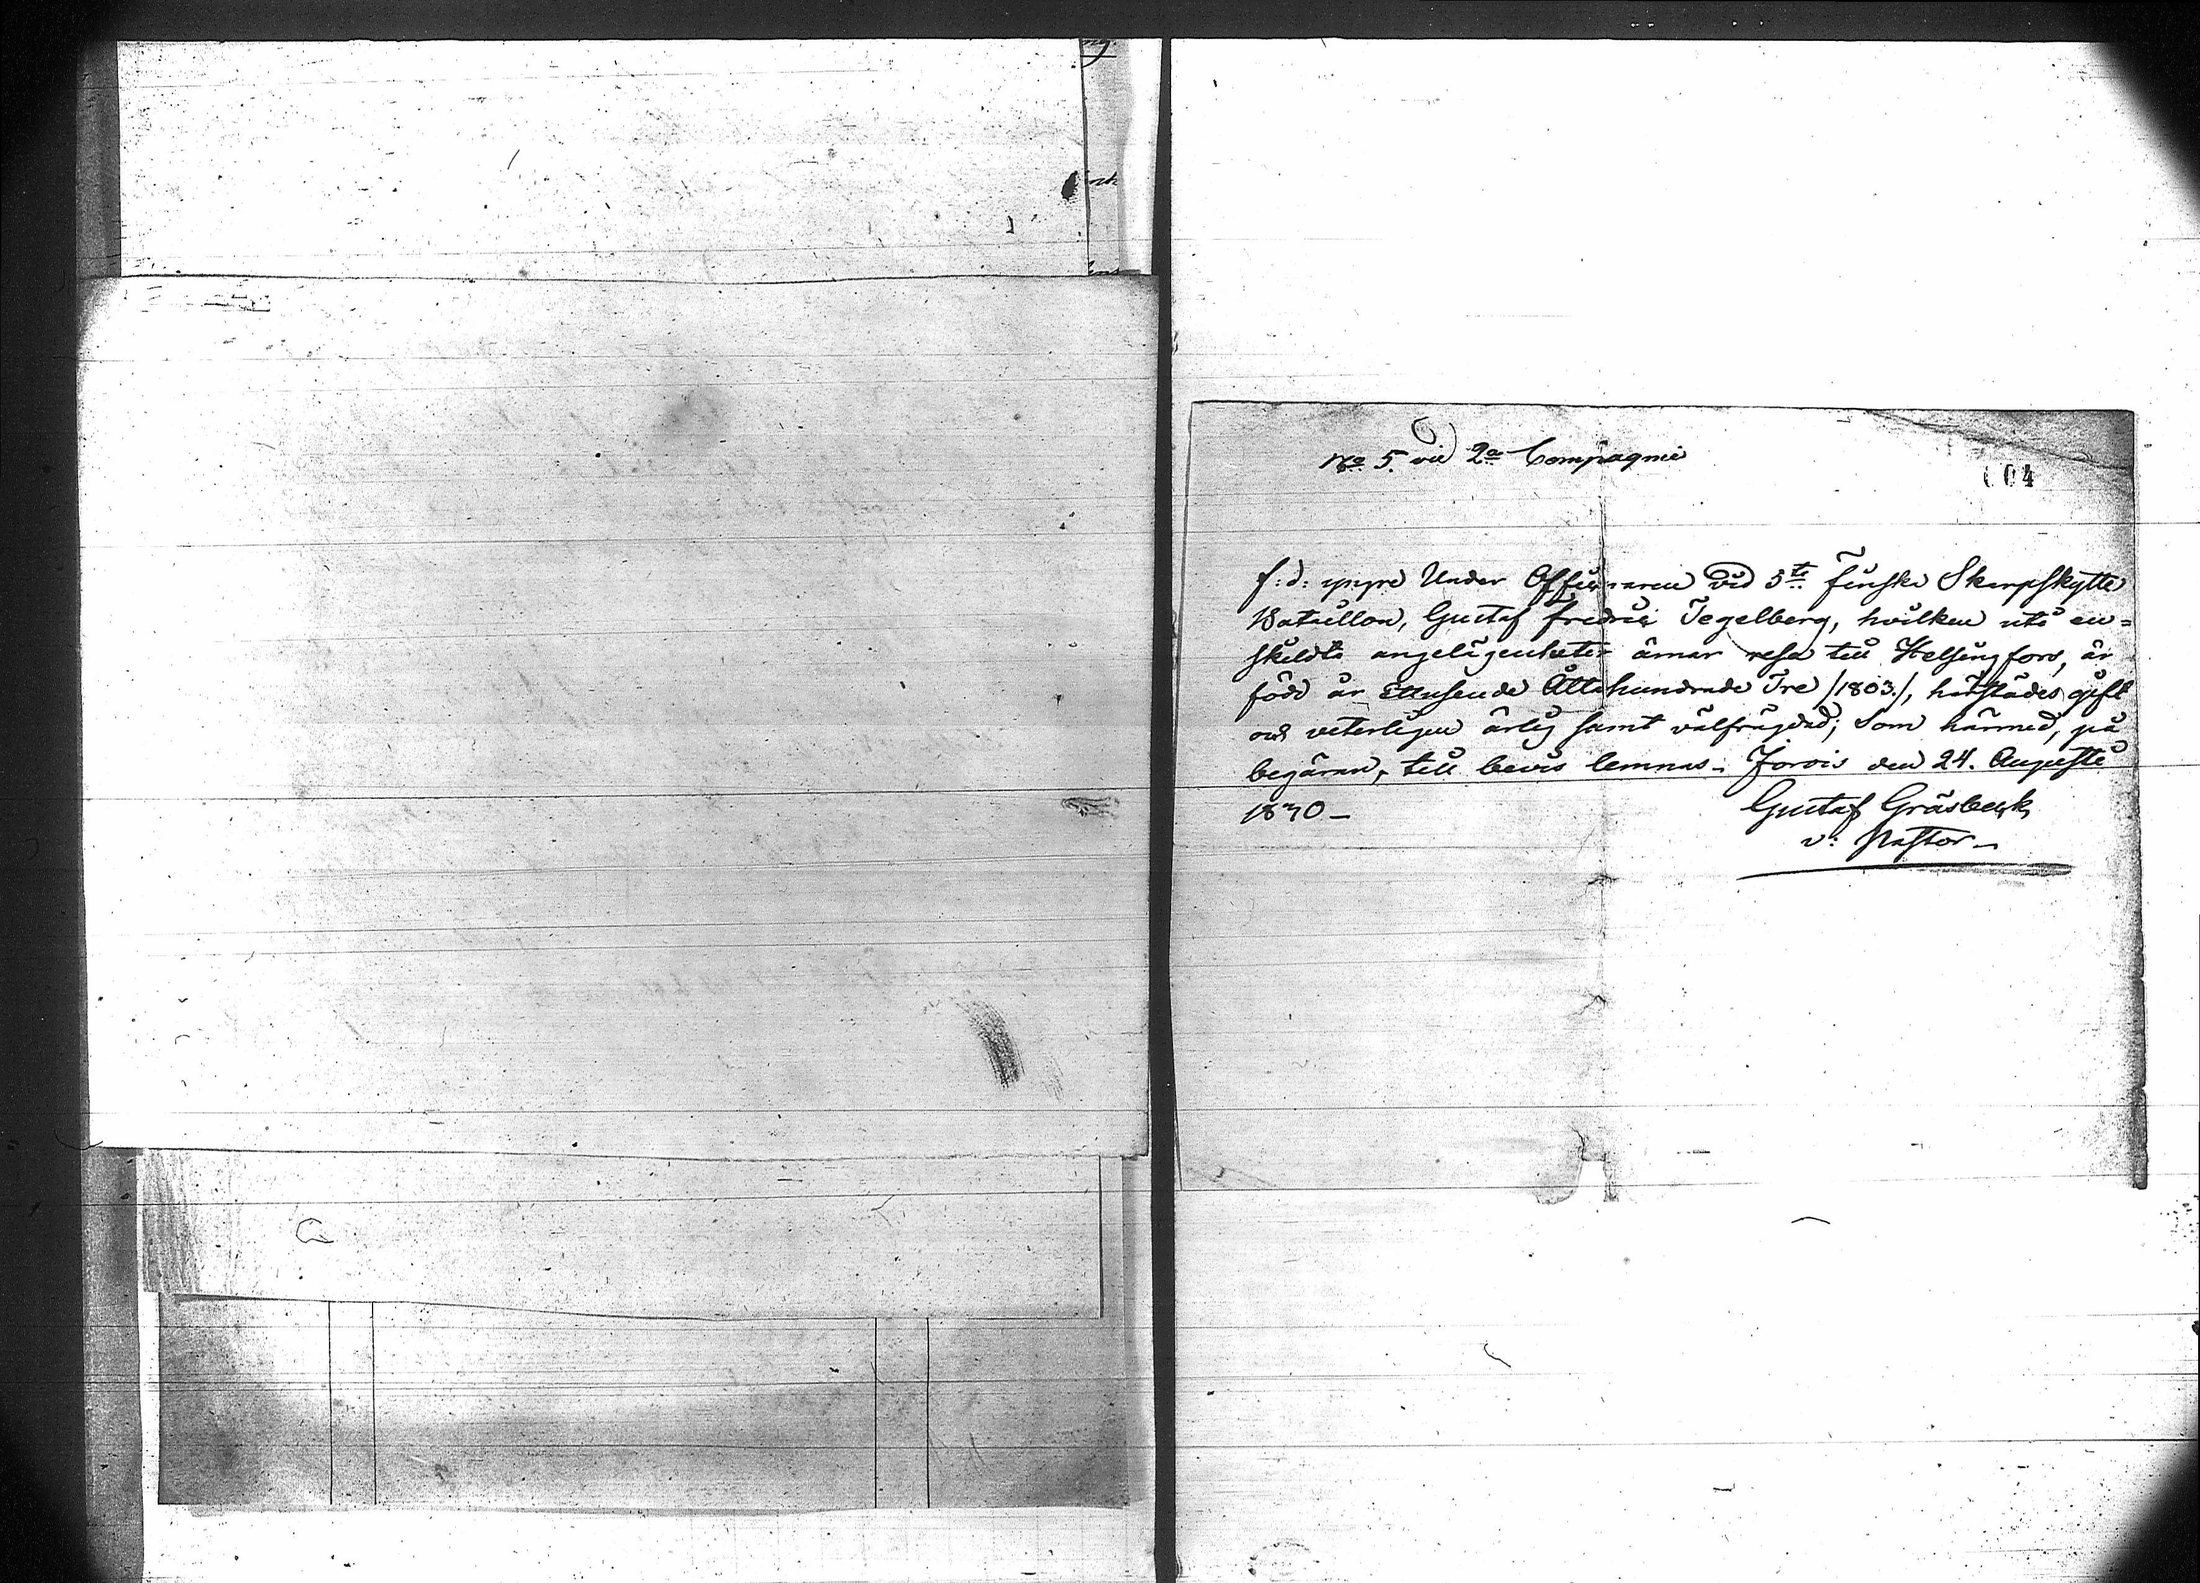 No 5. vid 2a Compagnie
604
f: d: yngre Under Officeraren vid 5te Finska Skarpskytte
Bataillon, Gustaf Fredric Tegelberg, hvilken uti en=
skeldta angelägenheter ämar resa till Helsingfors, är
född år Ettusende Åttahundrade Tre /1803./, härstädes gift
och veterligen ärlig samt välfrägdad; Som härmed, på
begäran, till bevis lemnas. Jorois den 24. Augusti
1830 _
Gustaf Gräsbeck
v: Pastor _